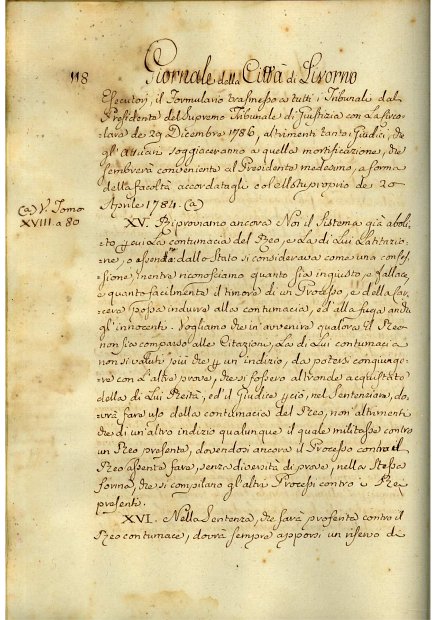 118
Giornale della Città di Livorno
Esecutori, il Formulario trasmesso a tutti i Tribunali dal
Presidente del Supremo Tribunale di Giustizia con La Circo-
lare de 29 Dicembre 1786, altrimenti tanto i Giudici, che
gl'Attuari soggiaceranno a quella mortificazione, che
sembrerà conveniente al Presidente medesimo, a forma
della facoltà accordatagli col Motuproprio de 20
Aprile 1784. (a)
(a) V. Tomo
XVIII a 80
XV. Riproviamo ancora Noi il Sistema già aboli-
to p cui La contumacia del Reo, e La di Lui Latitazio-
ne, o assenza dallo Stato si considerava come una confes-
sione, mentre riconosciamo quanto sia ingiusto, e fallace,
e quanto facilmente il timore di un Processo, e della Car-
cere possa indurre alla contumacia, ed alla fuga anche
gl'innocenti. Vogliamo che in avvenire qualora il Reo
non sia comparso alle Citazioni, La di Lui contumacia
non si valuti più che p un indizio, da potersi congiunge-
re con l'altre prove, che si fossero altronde acquistate
della di Lui Reità, ed il Giudice p ciò, nel Sentenziare, do-
vrà fare uso della contumacia del Reo, non altrimenti
che di un'altro indizio qualunque il quale militasse contro
un Reo presente, dovendosi ancora il Processo contro il
Reo assente fare, senza diversità di prove, nella stessa
forma, che si compilano gl'altri Processi contro i Rei
presenti.
XVI. Nella Sentenza, che sarà proferita contro il
Reo contumace, dovrà sempre apporsi un riservo di